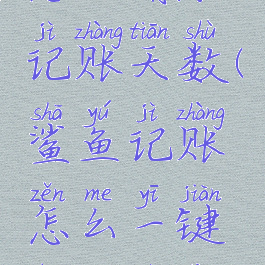 jì zhàng tiān shù
记账天数(
shā yú jì zhàng
鲨鱼记账
zěn me yī jiàn
怎么一键